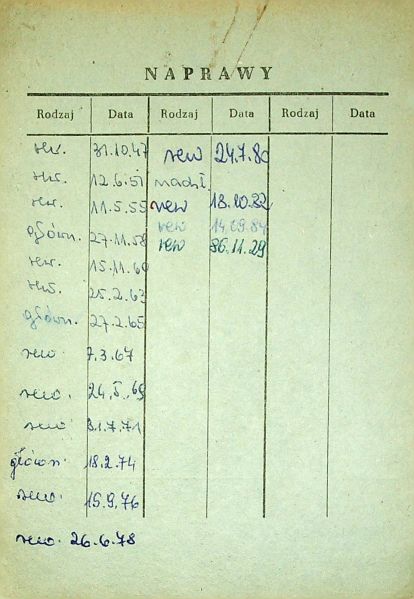 NAPRAWY
Rodzaj Data Rodzaj Data Rodzaj Data
rew. 31.10.47
rew. 12.6.51
rew. 11.5.55
główn. 27.11.58
rew. 15.11.60
rew. 25.2.63
główn. 27.2.65
rew 7.3.67
rew. 24.5.69
rew. 31.7.71
główn. 18.2.74
rew. 15.9.76
rew. 26.6.78
rew 24.7.80
rew 18.10.82
rew 14.09.84
rew 86.11.29